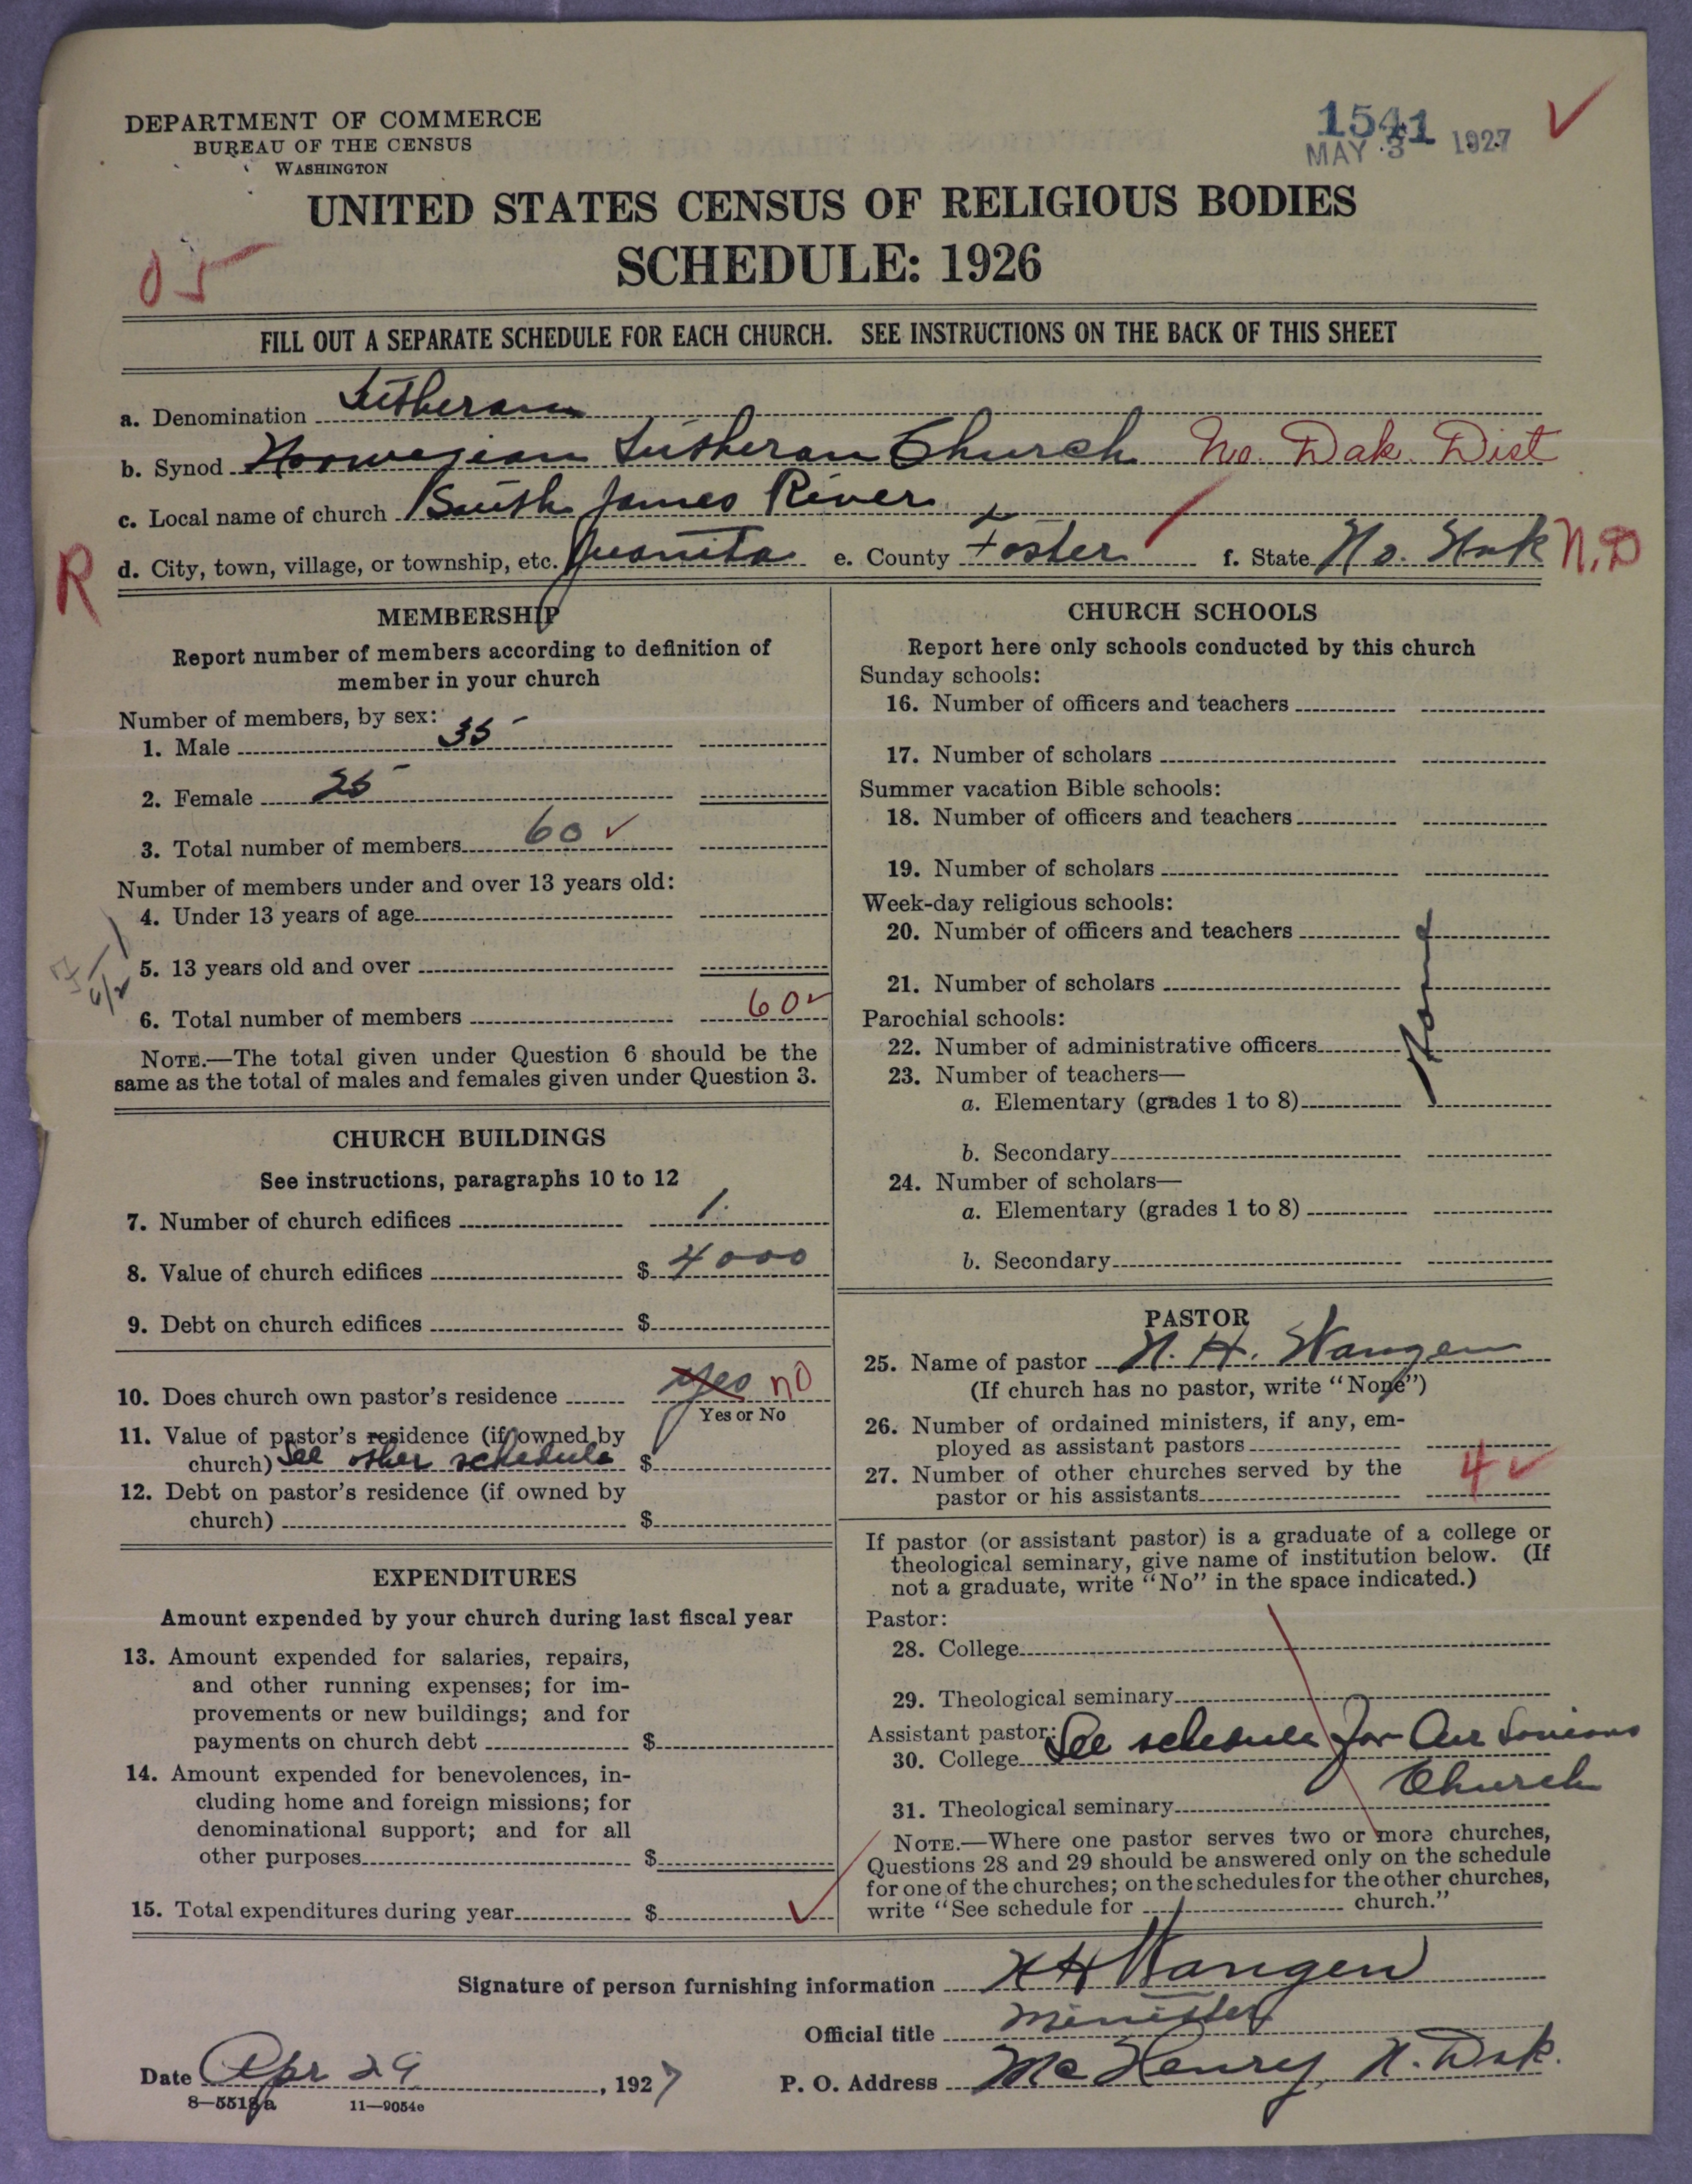 DEPARTMENT OF COMMERCE
BUREAU OF THE CENSUS
WASHINGTON
1541
MAY 3 1927
UNITED STATES CENSUS OF RELIGIOUS BODIES
SCHEDULE: 1926
05
FILL OUT A SEPARATE SCHEDULE FOR EACH CHURCH. SEE INSTRUCTIONS ON THE BACK OF THIS SHEET
a. Denomination Lutheran
b. Synod Norwegian Lutheran Church No. Dak. Dist
c. Local name of church South James River
R d. City, town, village, or township, etc. Juanita e. County Foster f. State No. Dak N.D
MEMBERSHIP
Report number of members according to definition of
member in your church
Number of members, by sex:
1. Male 35
2. Female 25
3. Total number of members 60 ✓
Number of members under and over 13 years old:
4. Under 13 years of age
5. 13 years old and over
6. Total number of members 60 ✓
NOTE.—The total given under Question 6 should be the
same as the total of males and females given under Question 3.
CHURCH BUILDINGS
See instructions, paragraphs 10 to 12
7. Number of church edifices 1.
8. Value of church edifices $ 4000
9. Debt on church edifices $
10. Does church own pastor's residence yes no
Yes or No
11. Value of pastor's residence (if owned by
church) See other schedule $
12. Debt on pastor's residence (if owned by
church) $
EXPENDITURES
Amount expended by your church during last fiscal year
13. Amount expended for salaries, repairs,
and other running expenses; for im-
provements or new buildings; and for
payments on church debt $
14. Amount expended for benevolences, in-
cluding home and foreign missions; for
denominational support; and for all
other purposes $
15. Total expenditures during year $ ✓
CHURCH SCHOOLS
Report here only schools conducted by this church
Sunday schools:
16. Number of officers and teachers
17. Number of scholars
Summer vacation Bible schools:
18. Number of officers and teachers
19. Number of scholars
Week-day religious schools:
20. Number of officers and teachers
21. Number of scholars
None
Parochial schools:
22. Number of administrative officers
23. Number of teachers—
a. Elementary (grades 1 to 8)
b. Secondary
24. Number of scholars—
a. Elementary (grades 1 to 8)
b. Secondary
PASTOR
25. Name of pastor N. H. Wangen
(If church has no pastor, write "None")
26. Number of ordained ministers, if any, em-
ployed as assistant pastors
27. Number of other churches served by the
pastor or his assistants 4 ✓
If pastor (or assistant pastor) is a graduate of a college or
theological seminary, give name of institution below. (If
not a graduate, write "No" in the space indicated.)
Pastor:
28. College
29. Theological seminary
Assistant pastor:
30. College See schedule for Our Saviours
Church
31. Theological seminary
NOTE.—Where one pastor serves two or more churches,
Questions 28 and 29 should be answered only on the schedule
for one of the churches; on the schedules for the other churches,
write "See schedule for church."
Signature of person furnishing information N H Wangen
Official title Minister
Date Apr 29, 1927 P. O. Address McHenry, N. Dak.
8—5518a 11—9054e